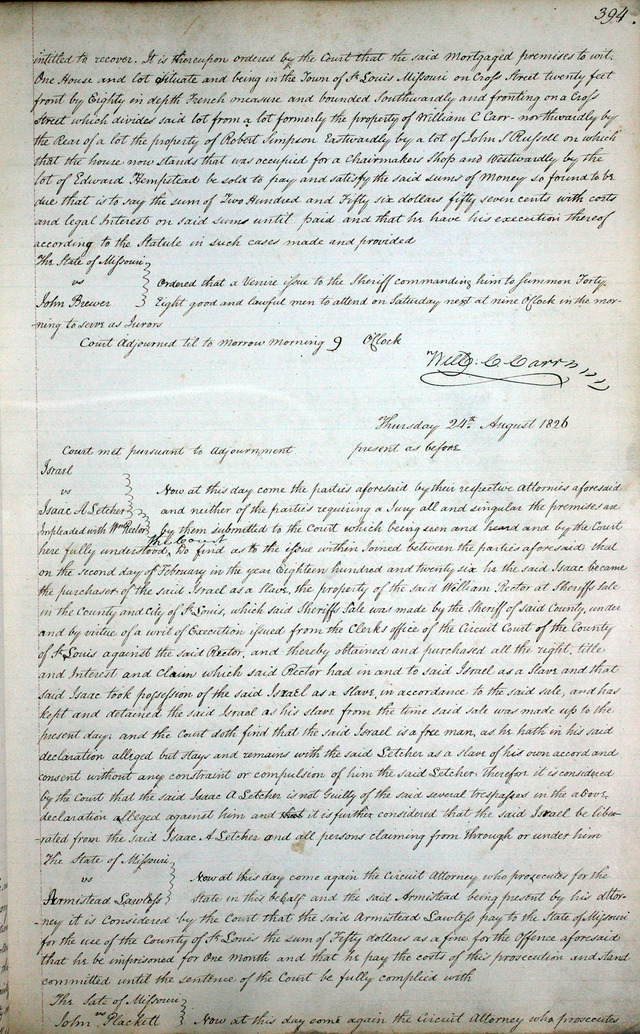 394
intitled to recover. It is thereupon ordered by the Court that the said Mortgaged premises to wit.
One House and lot situate and being in the Town of St Louis Missouri on Cross Street twenty feet
front by Eighty in depth French measure and bounded Southwardly and fronting on a Cross
Street which divides said lot from a lot formerly the property of William C Carr northwardly by
the Rear of a lot the property of Robert Simpson Eastwardly by a lot of John S Russell on which
that the house now stands that was occupied for a Chairmakers Shop and Westwardly by the
lot of Edward Hempstead be sold to pay and satisfy the said sums of Money so found to be
due that is to say the sum of Two Hundred and Fifty six dollars fifty seven cents with costs
and legal Interest on said sums until paid and that he have his execution thereof
according to the Statute in such cases made and provided
The State of Missouri
vs Ordered that a Venire issue to the Sheriff commanding him to summon Forty
John Brewer Eight good and lawful men to attend on Saturday next at nine OClock in the mor-
ning to serve as Jurors
Court Adjourned til to Morrow morning 9 OClock
Will. C. Carr
Thursday 24th August 1826
Court met pursuant to Adjournment present as before
Israel
vs Now at this day come the parties aforesaid by their respective Attornies aforesaid
Isaac A Letcher and neither of the parties requiring a Jury all and singular the premises are
Impleaded with Wm Rector by them submitted to the Court which being seen and heard and by the Court
here fully understood, the Court do find as to the issue within Joined between the parties aforesaid that
on the second day of February in the year Eighteen hundred and twenty six he the said Isaac became
the purchaser of the said Israel as a slave, the property of the said William Rector at Sheriffs sale
in the County and City of St Louis, which said Sheriffs Sale was made by the Sheriff of said County, under
and by virtue of a writ of Execution issued from the Clerks office of the Circuit Court of the County
of St Louis against the said Rector, and thereby obtained and purchased all the right, title
and Interest and Claim which said Rector had in and to said Israel as a Slave and that
said Isaac took possession of the said Israel as a slave, in accordance to the said sale, and has
kept and detained the said Israel as his slave from the time said sale was made up to the
present day; and the Court doth find that the said Israel is a free man, as he hath in his said
declaration alleged but stays and remains with the said Letcher as a slave of his own accord and
consent without any constraint or compulsion of him the said Letcher therefore it is considered
by the Court that the said Isaac A Letcher is not Guilty of the said several trespasses in the above
declaration alleged against him and that it is further considered that the said Israel be libe-
rated from the said Isaac A Letcher and all persons claiming from through or under him
The State of Missouri
vs Now at this day come again the Circuit Attorney who prosecutes for the
Armistead Lawless State in this behalf and the said Armistead being present by his attor-
ney it is Considered by the Court that the said Armistead Lawless pay to the State of Missouri
for the use of the County of St Louis the sum of Fifty dollars as a fine for the Offence aforesaid
that he be imprisoned for One Month and that he pay the costs of this prosecution and stand
committed until the sentence of the Court be fully complied with
The Sate of Missouri
vs
John Plackett Now at this day come again the Circuit Attorney who prosecutes